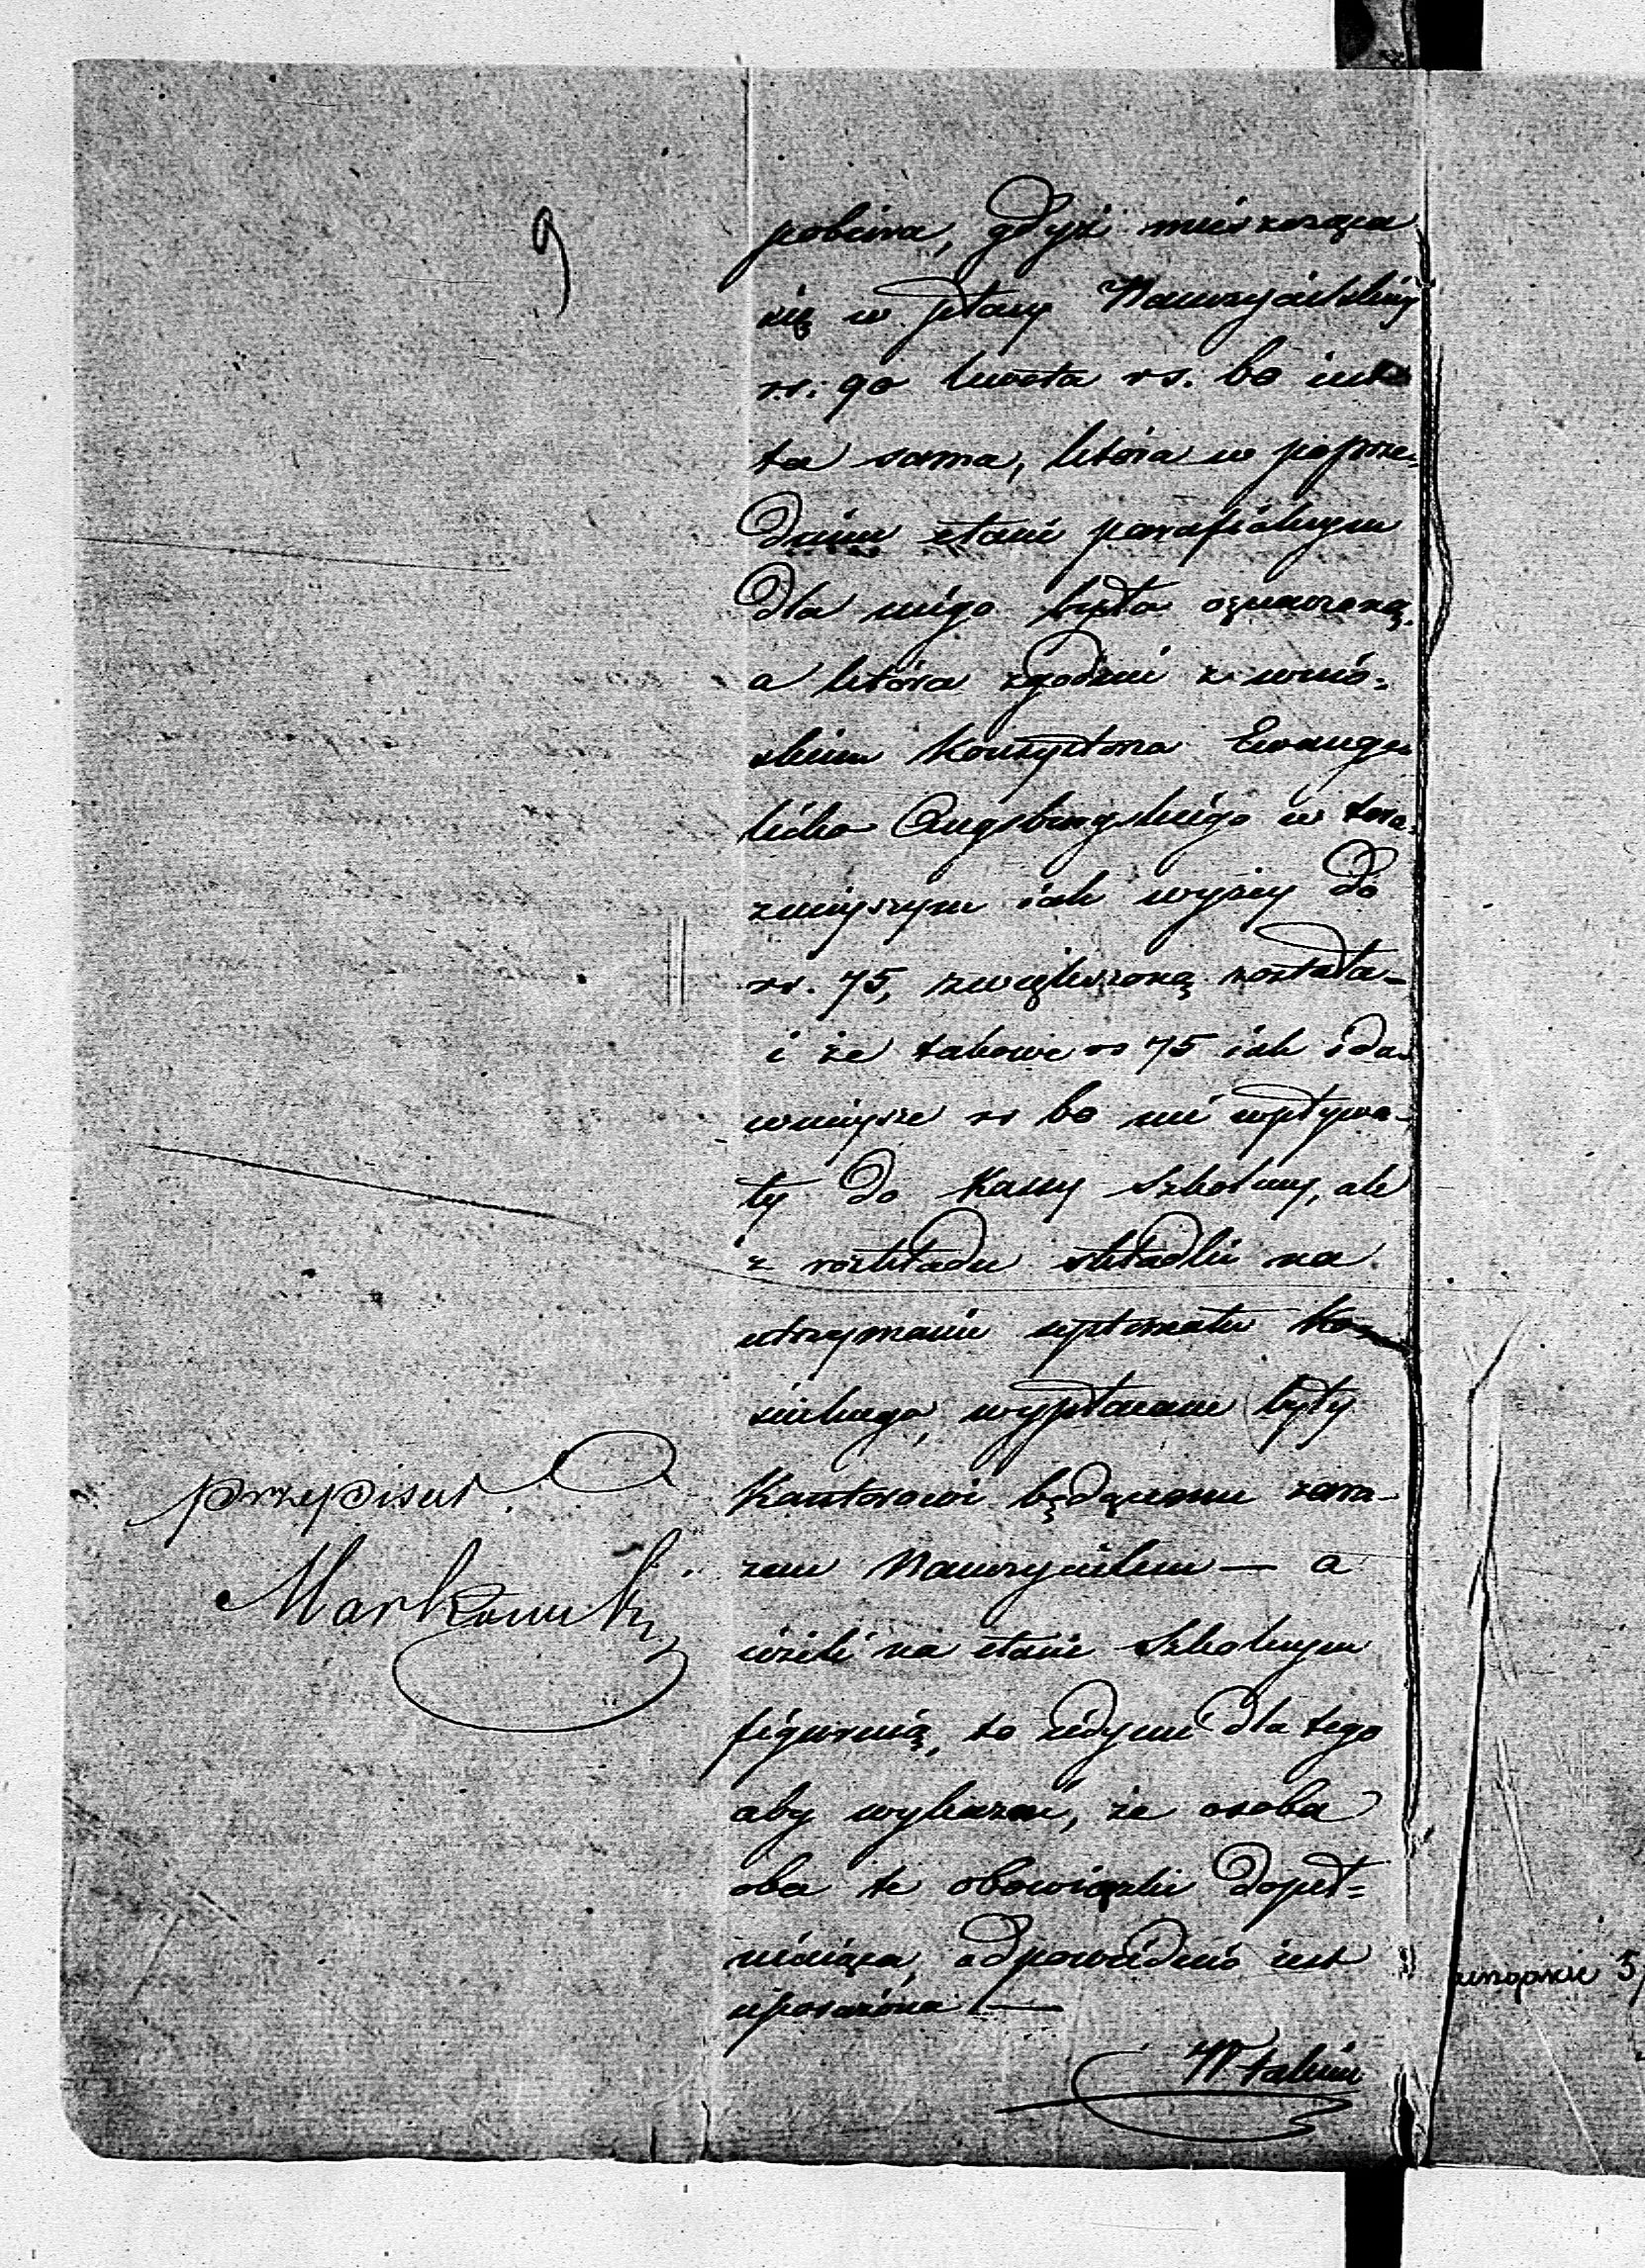 9
pobiera, gdyż mieszcząca
się w płacy Nauczycielskiéj
rs: 90 kwota rs. 60 iest
ta sama, która w poprze=
dnim etacie parafialnym
dla niego była oznaczoną,
a która zgodnie z wnio=
skiem Konsystorza Ewange=
licko Augsburgskiégo w tera=
znieyszym iak wyżey do
rs. 75, zwiększoną została—
i że takowe rs 75 iak i da=
wnieysze rs 60 nie wpływa=
ły do Kassy Szkolney, ale
z rozkładu składki na
utrzymanie
cielnego, wypłacane były
Kantorowi będącemu zara=
zem Nauczycielem — a
ieżeli na etacie Szkolnym
figurują, to iedynie dla tego
aby wykazać, że osoba
oba te obowiązki dopeł=
niaiąca, odpowiednio iest
uposażona —
przepisał